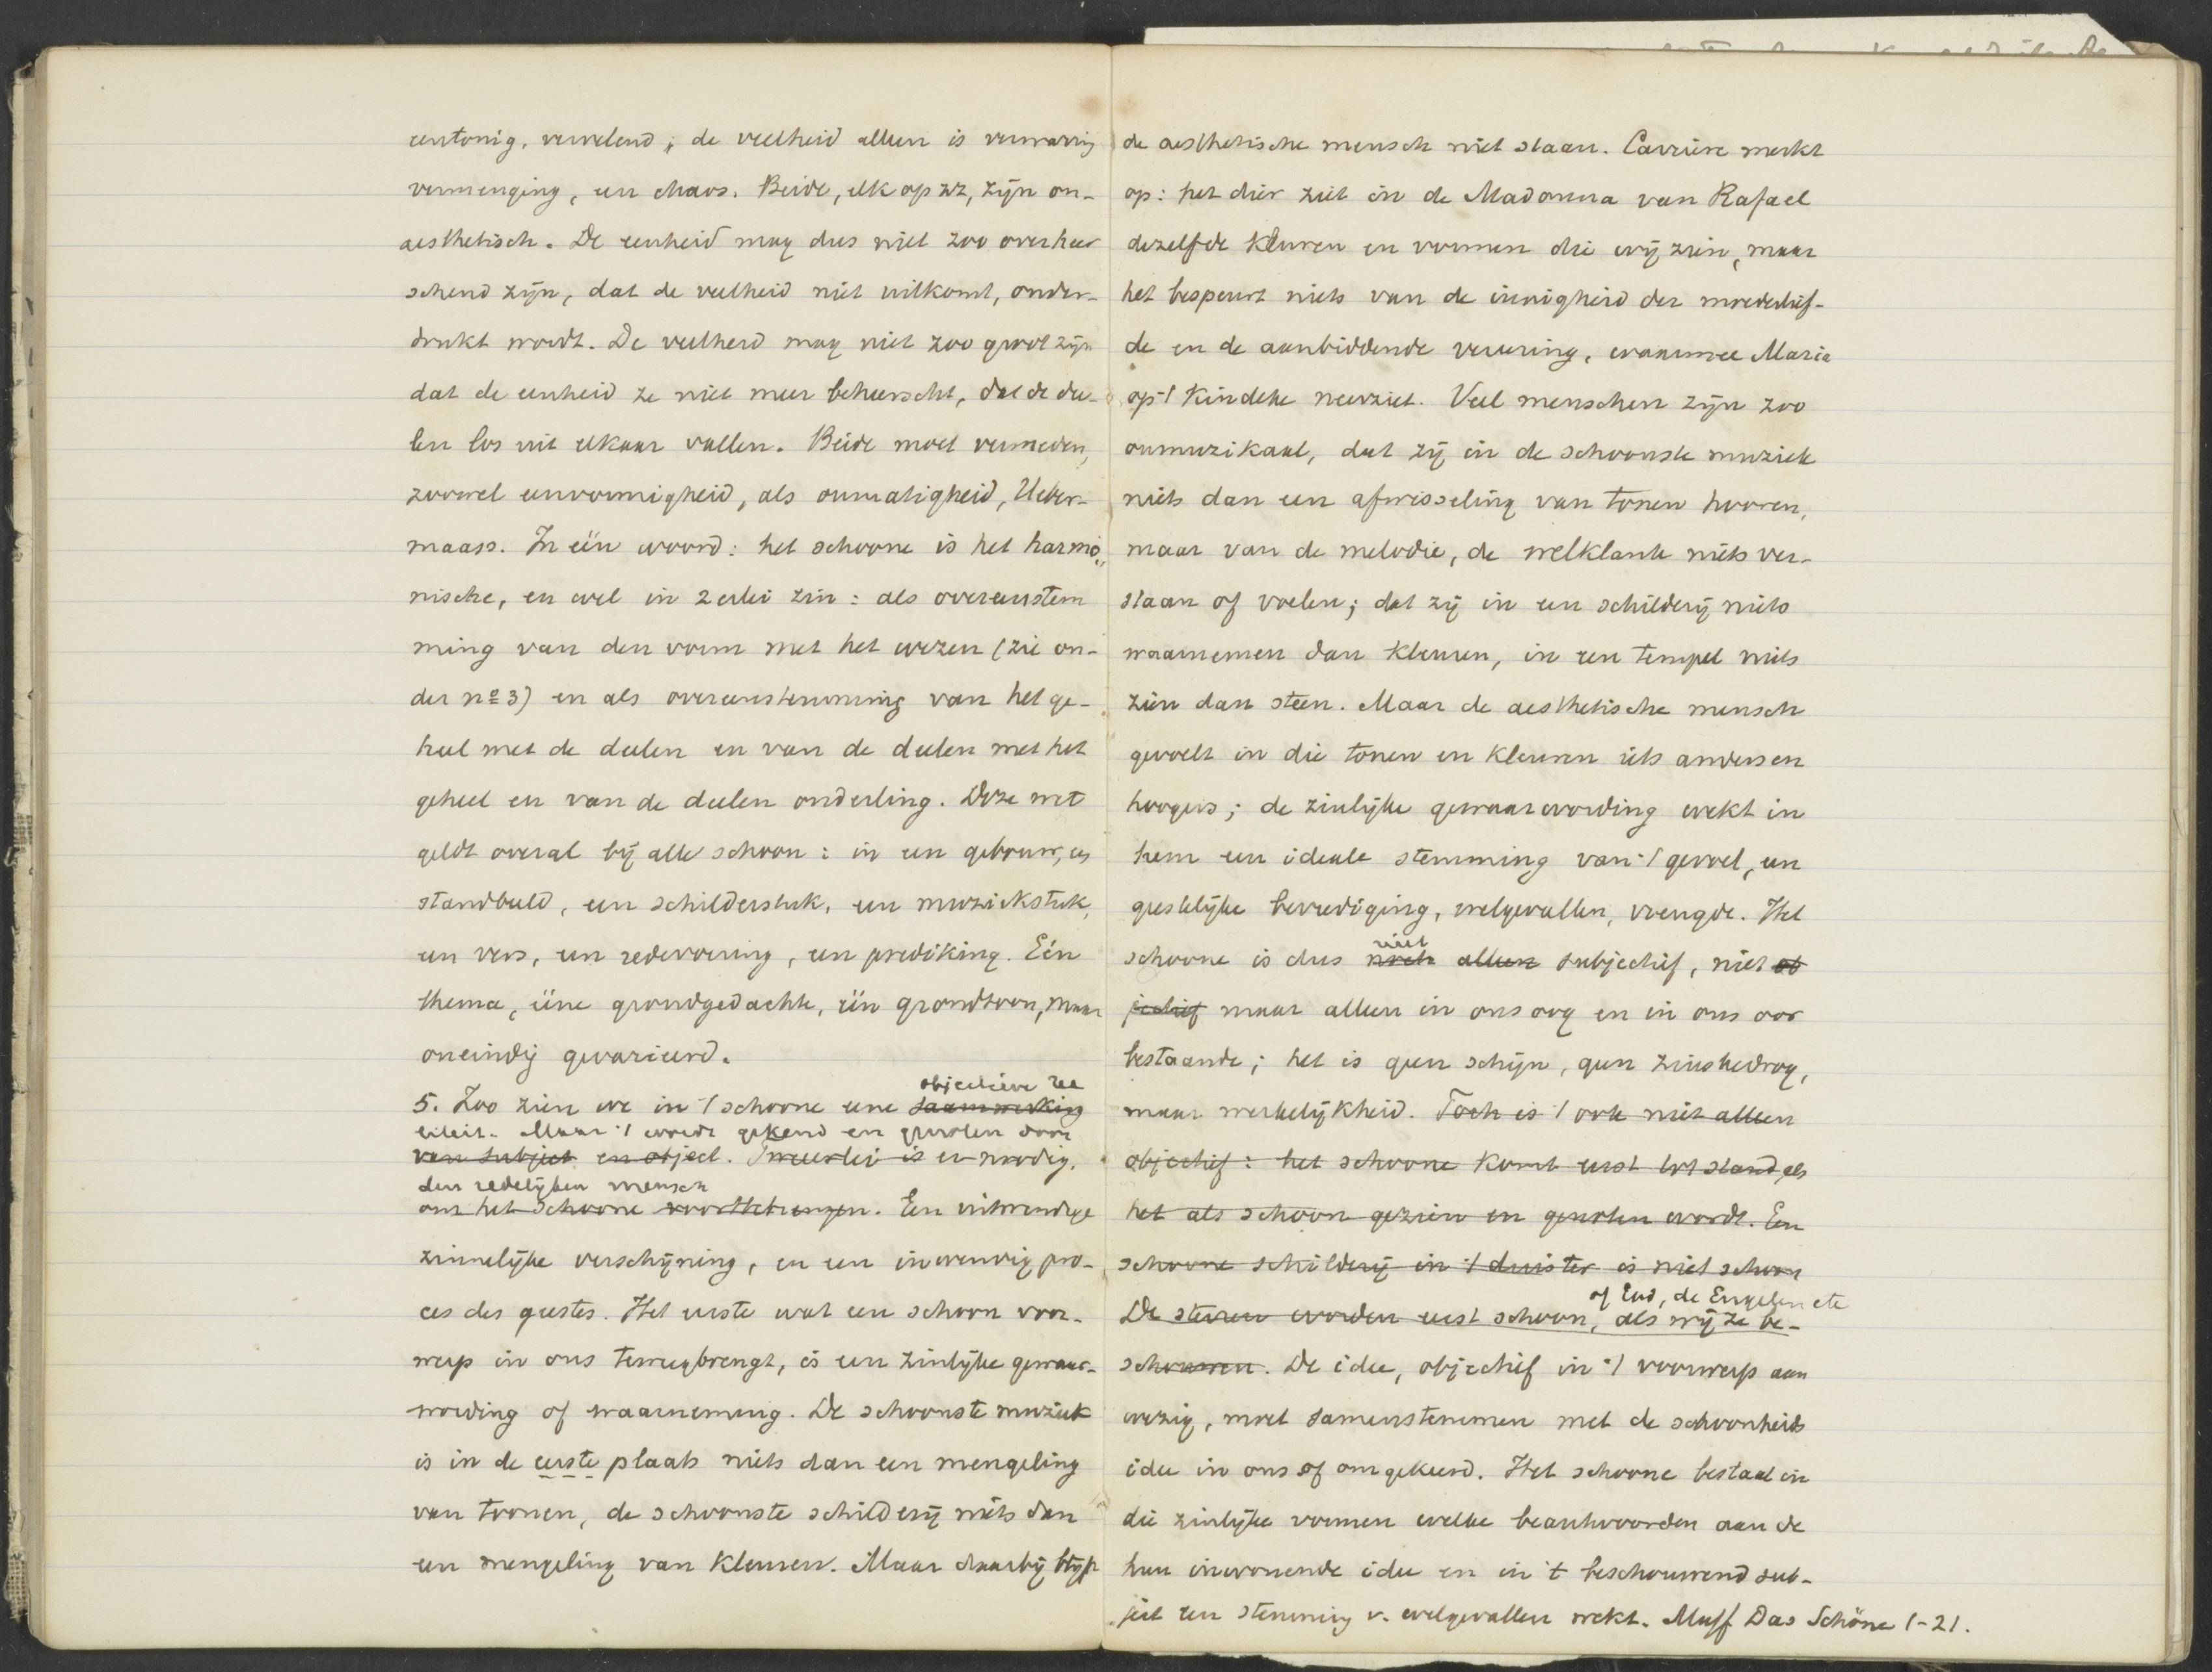 eentonig, vervelend; de veelheid alleen is verwarring
vermenging, een chaos. Beide, elk op zz, zijn on-
aesthetisch. De eenheid mag dus niet zoo overheer
schend zijn, dat de veelheid niet uitkomt, onder-
drukt wordt. De veelheid mag niet zoo groot zijn
dat de eenheid ze niet meer beheerscht, dat de dee-
len los uit elkaar vallen. Beide moet vermeden,
zoowel eenvormigheid, als onmatigheid, Ueber-
maass. In één woord: het schoone is het harmo-
nische, en wel in 2erlei zin: als overeenstem
ming van den vorm met het wezen (zie on-
der no 3) en als overeenstemming van het ge-
heel met de deelen en van de deelen met het
geheel en van de deelen onderling. Deze wet
geldt overal bij alle schoon: in een gebouw, een
standbeeld, een schilderstuk, een muziekstuk,
een vers, een redevoering, een prediking. Eén
thema, ééne grondgedachte, één grondtoon, maar
oneindig gevarieerd.
objectieve rea
5. Zoo zien we in 't schoone eene saamwerking
liteit. Maar 't wordt gekend en genoten door
van subject en object. Tweeërlei is er noodig,
den redelijken mensch
om het schoone voort te brengen. Een uitwendige
zinnelijke verschijning, en een inwendig pro-
ces des geestes. Het eerste wat een schoon voor-
werp in ons teweegbrengt, is een zinlijke gewaar-
wording of waarneming. De schoonste muziek
is in de eerste plaats niets dan een mengeling
van toonen, de schoonste schilderij niets dan
een mengeling van kleuren. Maar daarbij blijft
de aesthetische mensch niet staan. Carrière merkt
op: het dier ziet in de Madonna van Rafael
dezelfde kleuren en vormen die wij zien, maar
het bespeurt niets van de innigheid der moederlief-
de en de aanbiddende vereering, waarmee Maria
op 't kindeke neerziet. Veel menschen zijn zoo
onmuzikaal, dat zij in de schoonste muziek
niets dan een afwisseling van tonen hooren,
maar van de melodie, de welklank niets ver-
staan of voelen; dat zij in een schilderij niets
waarnemen dan kleuren, in een tempel niets
zien dan steen. Maar de aesthetische mensch
gevoelt in die tonen en kleuren iets anders en
hoogers; de zinlijke gewaarwording wekt in
hem een ideale stemming van 't gevoel, een
geestelijke bevrediging, welgevallen, vreugde. Het
niet
schoone is dus noch alleen subjectief, niet ob
jectief maar alleen in ons oog en in ons oor
bestaande; het is geen schijn, geen zinsbedrog,
maar werkelijkheid. Toch is 't ook niet alleen
objectief: het schoone komt eerst tot stand, als
het als schoon gezien en genoten wordt. Een
schoone schilderij in 't duister is niet schoon
of God, de Engelen etc
De sterren worden eerst schoon, als wij ze be-
schouwen. De idee, objectief in 't voorwerp aan
wezig, moet samenstemmen met de schoonheids
idee in ons of omgekeerd. Het schoone bestaat in
die zinlijke vormen welke beantwoorden aan de
hun inwonende idee en in 't beschouwend sub-
ject een stemming v. welgevallen wekt. Muff Das Schöne 1-21.